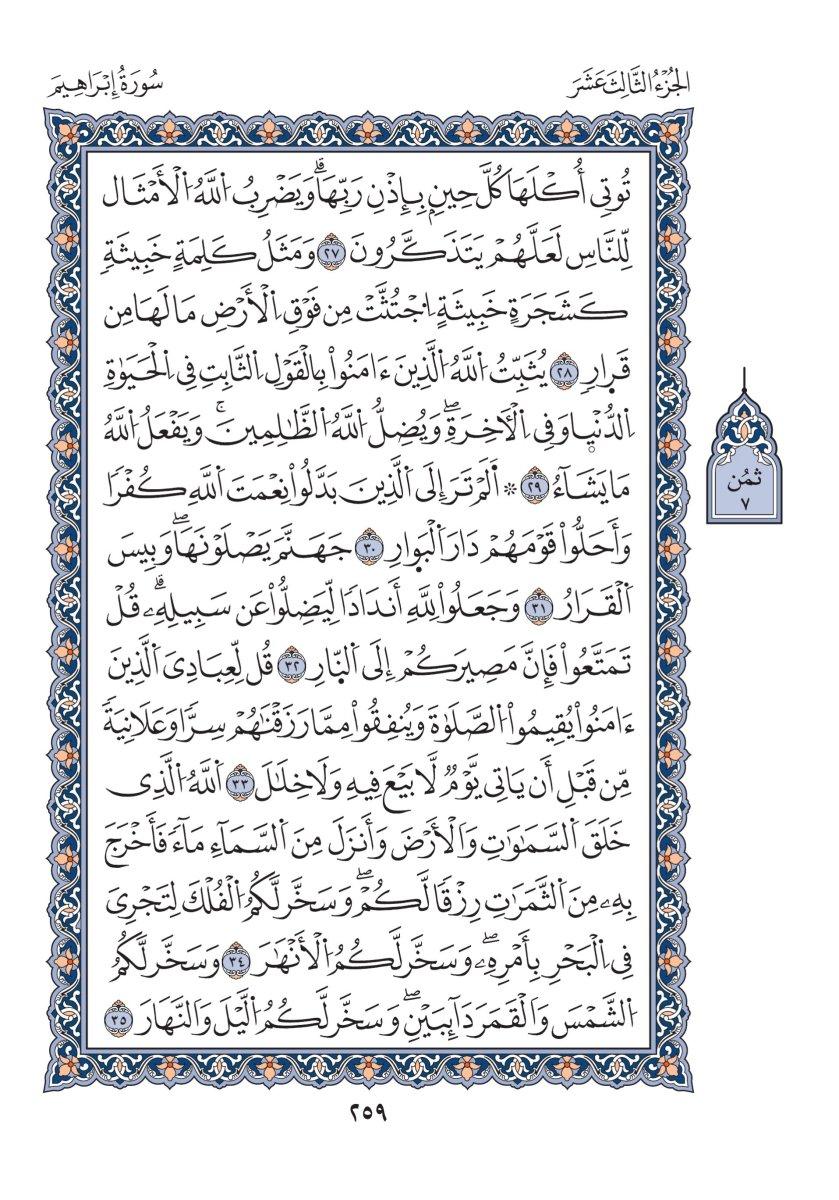 الجُزْءُ الثَّالِثَ عَشَرَ
سُورَةُ إِبْرَاهِيمَ
تُوتِي أُكْلَهَا كُلَّ حِينِۢ بِإِذْنِ رَبِّهَاۗ وَيَضْرِبُ اُ۬للَّهُ اُ۬لْأَمْثَالَ
لِلنَّاسِ لَعَلَّهُمْ يَتَذَكَّرُونَ ٢٧ وَمَثَلُ كَلِمَةٍ خَبِيثَةٖ
كَشَجَرَةٍ خَبِيثَةٍ اِ۟جْتُثَّتْ مِن فَوْقِ اِ۬لْأَرْضِ مَا لَهَا مِن
قَرَارٖ ٢٨ يُثَبِّتُ اُ۬للَّهُ اُ۬لَّذِينَ ءَامَنُواْ بِالْقَوْلِ اِ۬لثَّابِتِ فِي اِ۬لْحَيَوٰةِ
اِ۬لدُّنْي۪ا وَفِي اِ۬لْأٓخِرَةِۖ وَيُضِلُّ اُ۬للَّهُ اُ۬لظَّٰلِمِينَۚ وَيَفْعَلُ اُ۬للَّهُ
مَا يَشَآءُ ٢٩ ۞ أَلَمْ تَرَ إِلَى اَ۬لَّذِينَ بَدَّلُواْ نِعْمَتَ اَ۬للَّهِ كُفْراٗ
وَأَحَلُّواْ قَوْمَهُمْ دَارَ اَ۬لْبَو۪ارِ ٣٠ جَهَنَّمَ يَصْلَوْنَهَاۖ وَبِيسَ
اَ۬لْقَرَارُ ٣١ وَجَعَلُواْ لِلهِ أَندَاداٗ لِّيَضِلُّواْ عَن سَبِيلِهِۦۗ قُلْ
تَمَتَّعُواْ فَإِنَّ مَصِيرَكُمْ إِلَى اَ۬لنّ۪ارِ ٣٢ قُل لِّعِبَادِيَ اَ۬لَّذِينَ
ءَامَنُواْ يُقِيمُواْ اُ۬لصَّلَوٰةَ وَيُنفِقُواْ مِمَّا رَزَقْنَٰهُمْ سِرّاٗ وَعَلَانِيَةٗ
مِّن قَبْلِ أَن يَاتِيَ يَوْمٌ لَّا بَيْعَ فِيهِ وَلَا خِلَٰلَ ٣٣ اَ۬للَّهُ اُ۬لَّذِي
خَلَقَ اَ۬لسَّمَٰوَٰتِ وَالْأَرْضَ وَأَنزَلَ مِنَ اَ۬لسَّمَآءِ مَآءٗ فَأَخْرَجَ
بِهِۦ مِنَ اَ۬لثَّمَرَٰتِ رِزْقاٗ لَّكُمْۖ وَسَخَّر لَّكُمُ اُ۬لْفُلْكَ لِتَجْرِيَ
فِي اِ۬لْبَحْرِ بِأَمْرِهِۦۖ وَسَخَّر لَّكُمُ اُ۬لْأَنْهَٰرَ ٣٤ وَسَخَّر لَّكُمُ
اُ۬لشَّمْسَ وَالْقَمَرَ دَآئِبَيْنِۖ وَسَخَّر لَّكُمُ اُ۬لَّيْلَ وَالنَّهَارَ ٣٥
ثمُن
٧
٢٥٩